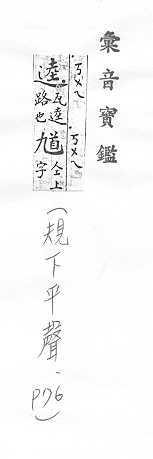 彙音寶鑑
ㄎㄨㄟ ㄎㄨㄟ
逵 瓦逵路也 馗 仝上字
(規下平聲